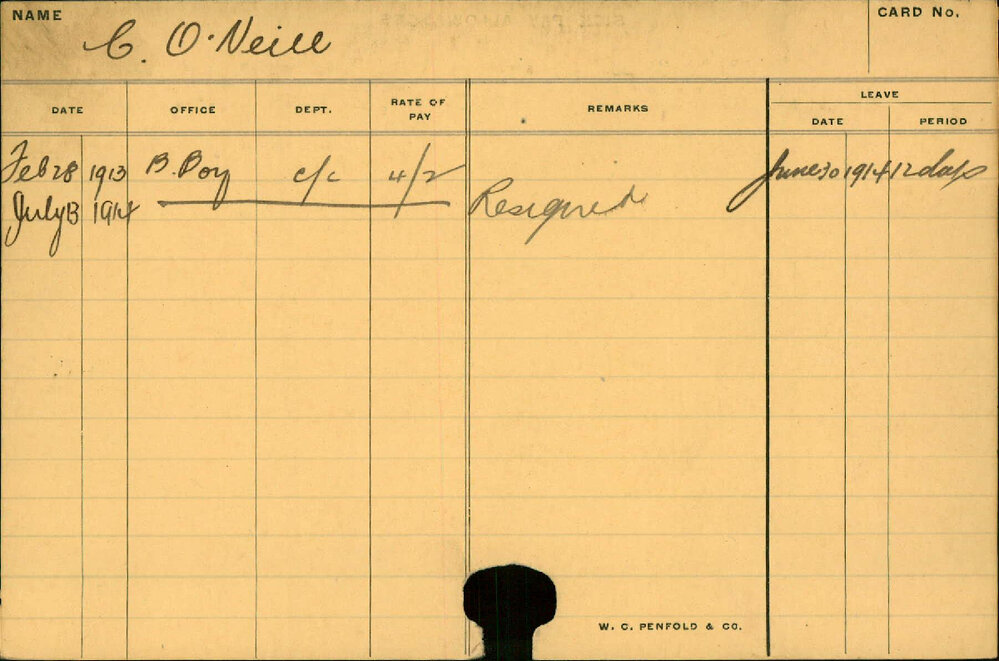 NAME C. O'Neill CARD No.
DATE OFFICE DEPT. RATE OF PAY REMARKS LEAVE
DATE PERIOD
Feb 28 1913 B. Boy c/c 4/2 June 30 1914 12 days
July 13 1914 Resigned
W. C. PENFOLD & CO.